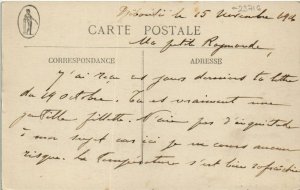 Djibouti le 15 Novembre 1916
23716
CARTE POSTALE
Ma petite Raymonde,
CORRESPONDANCE
ADRESSE
J'ai reçu ces jours derniers ta lettre
du 29 octobre. Tu es vraiment une
gentille fillette. N'aie pas d'inquiétude
à mon sujet car ici je ne cours aucun
risque. La température s'est bien rafraichie